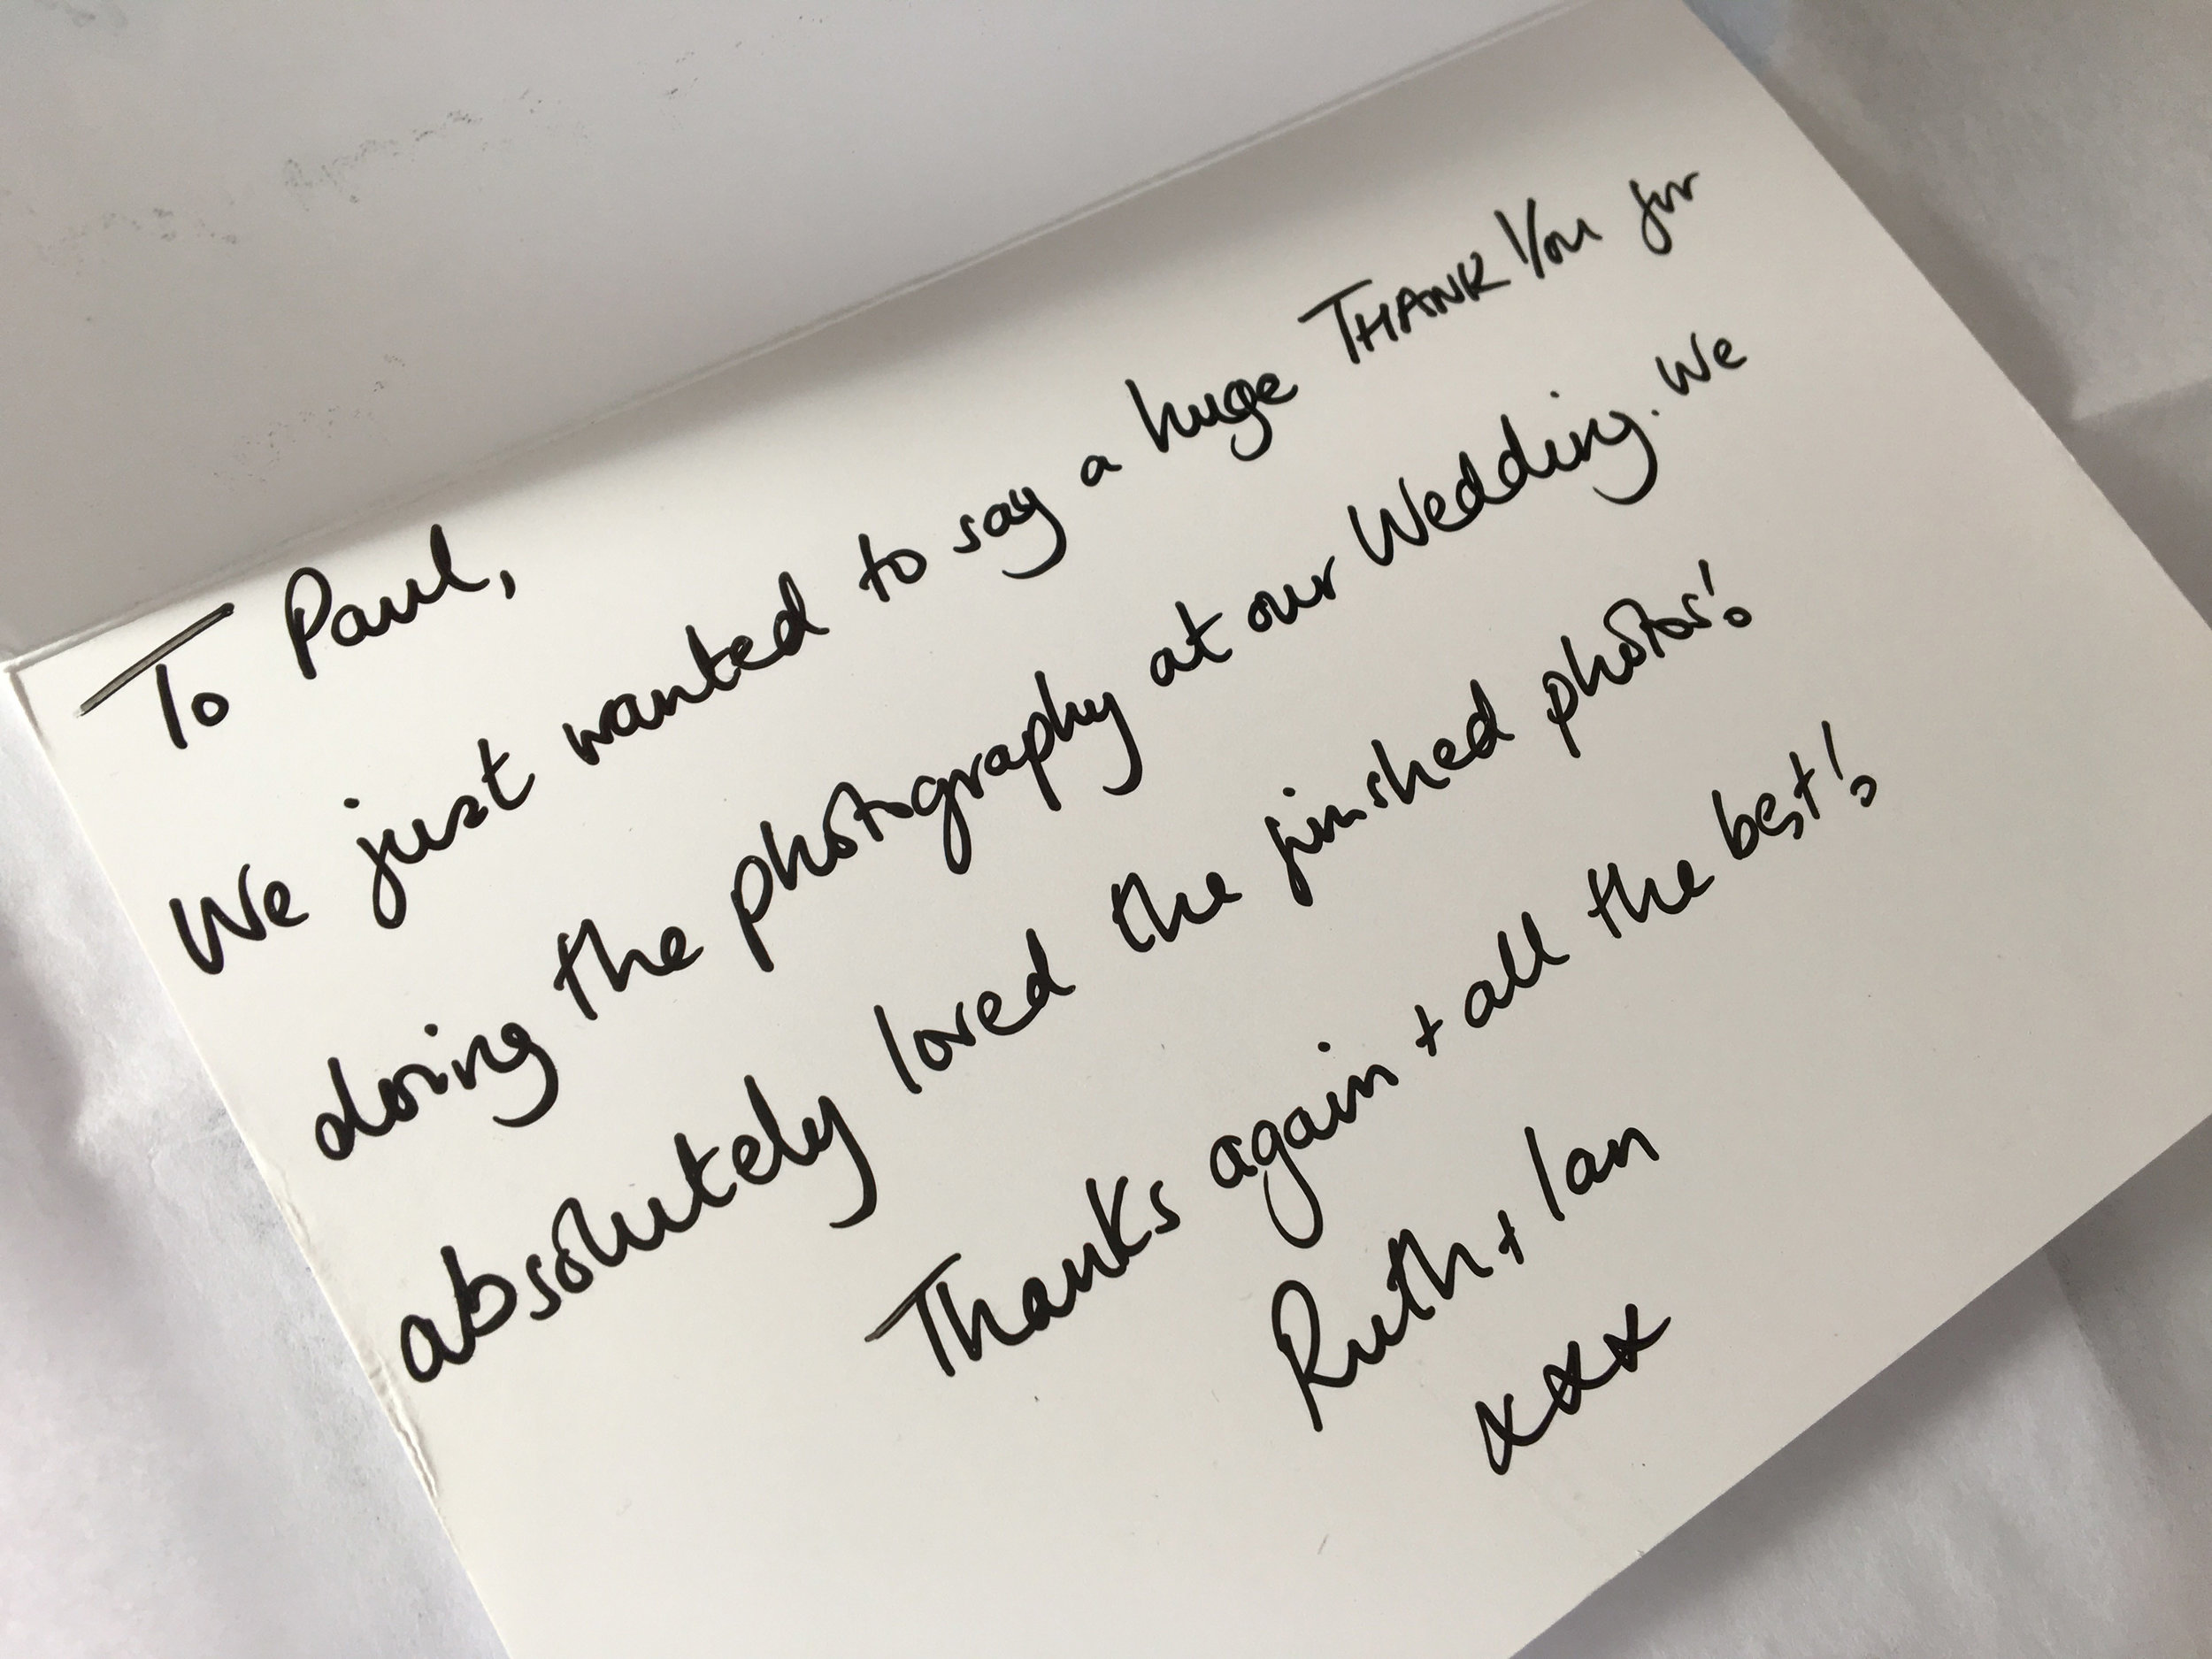 To Paul,
We just wanted to say a huge THANK You for
doing the photography at our Wedding. We
absolutely loved the finished photos!
Thanks again + all the best!
Ruth + Ian
xxx